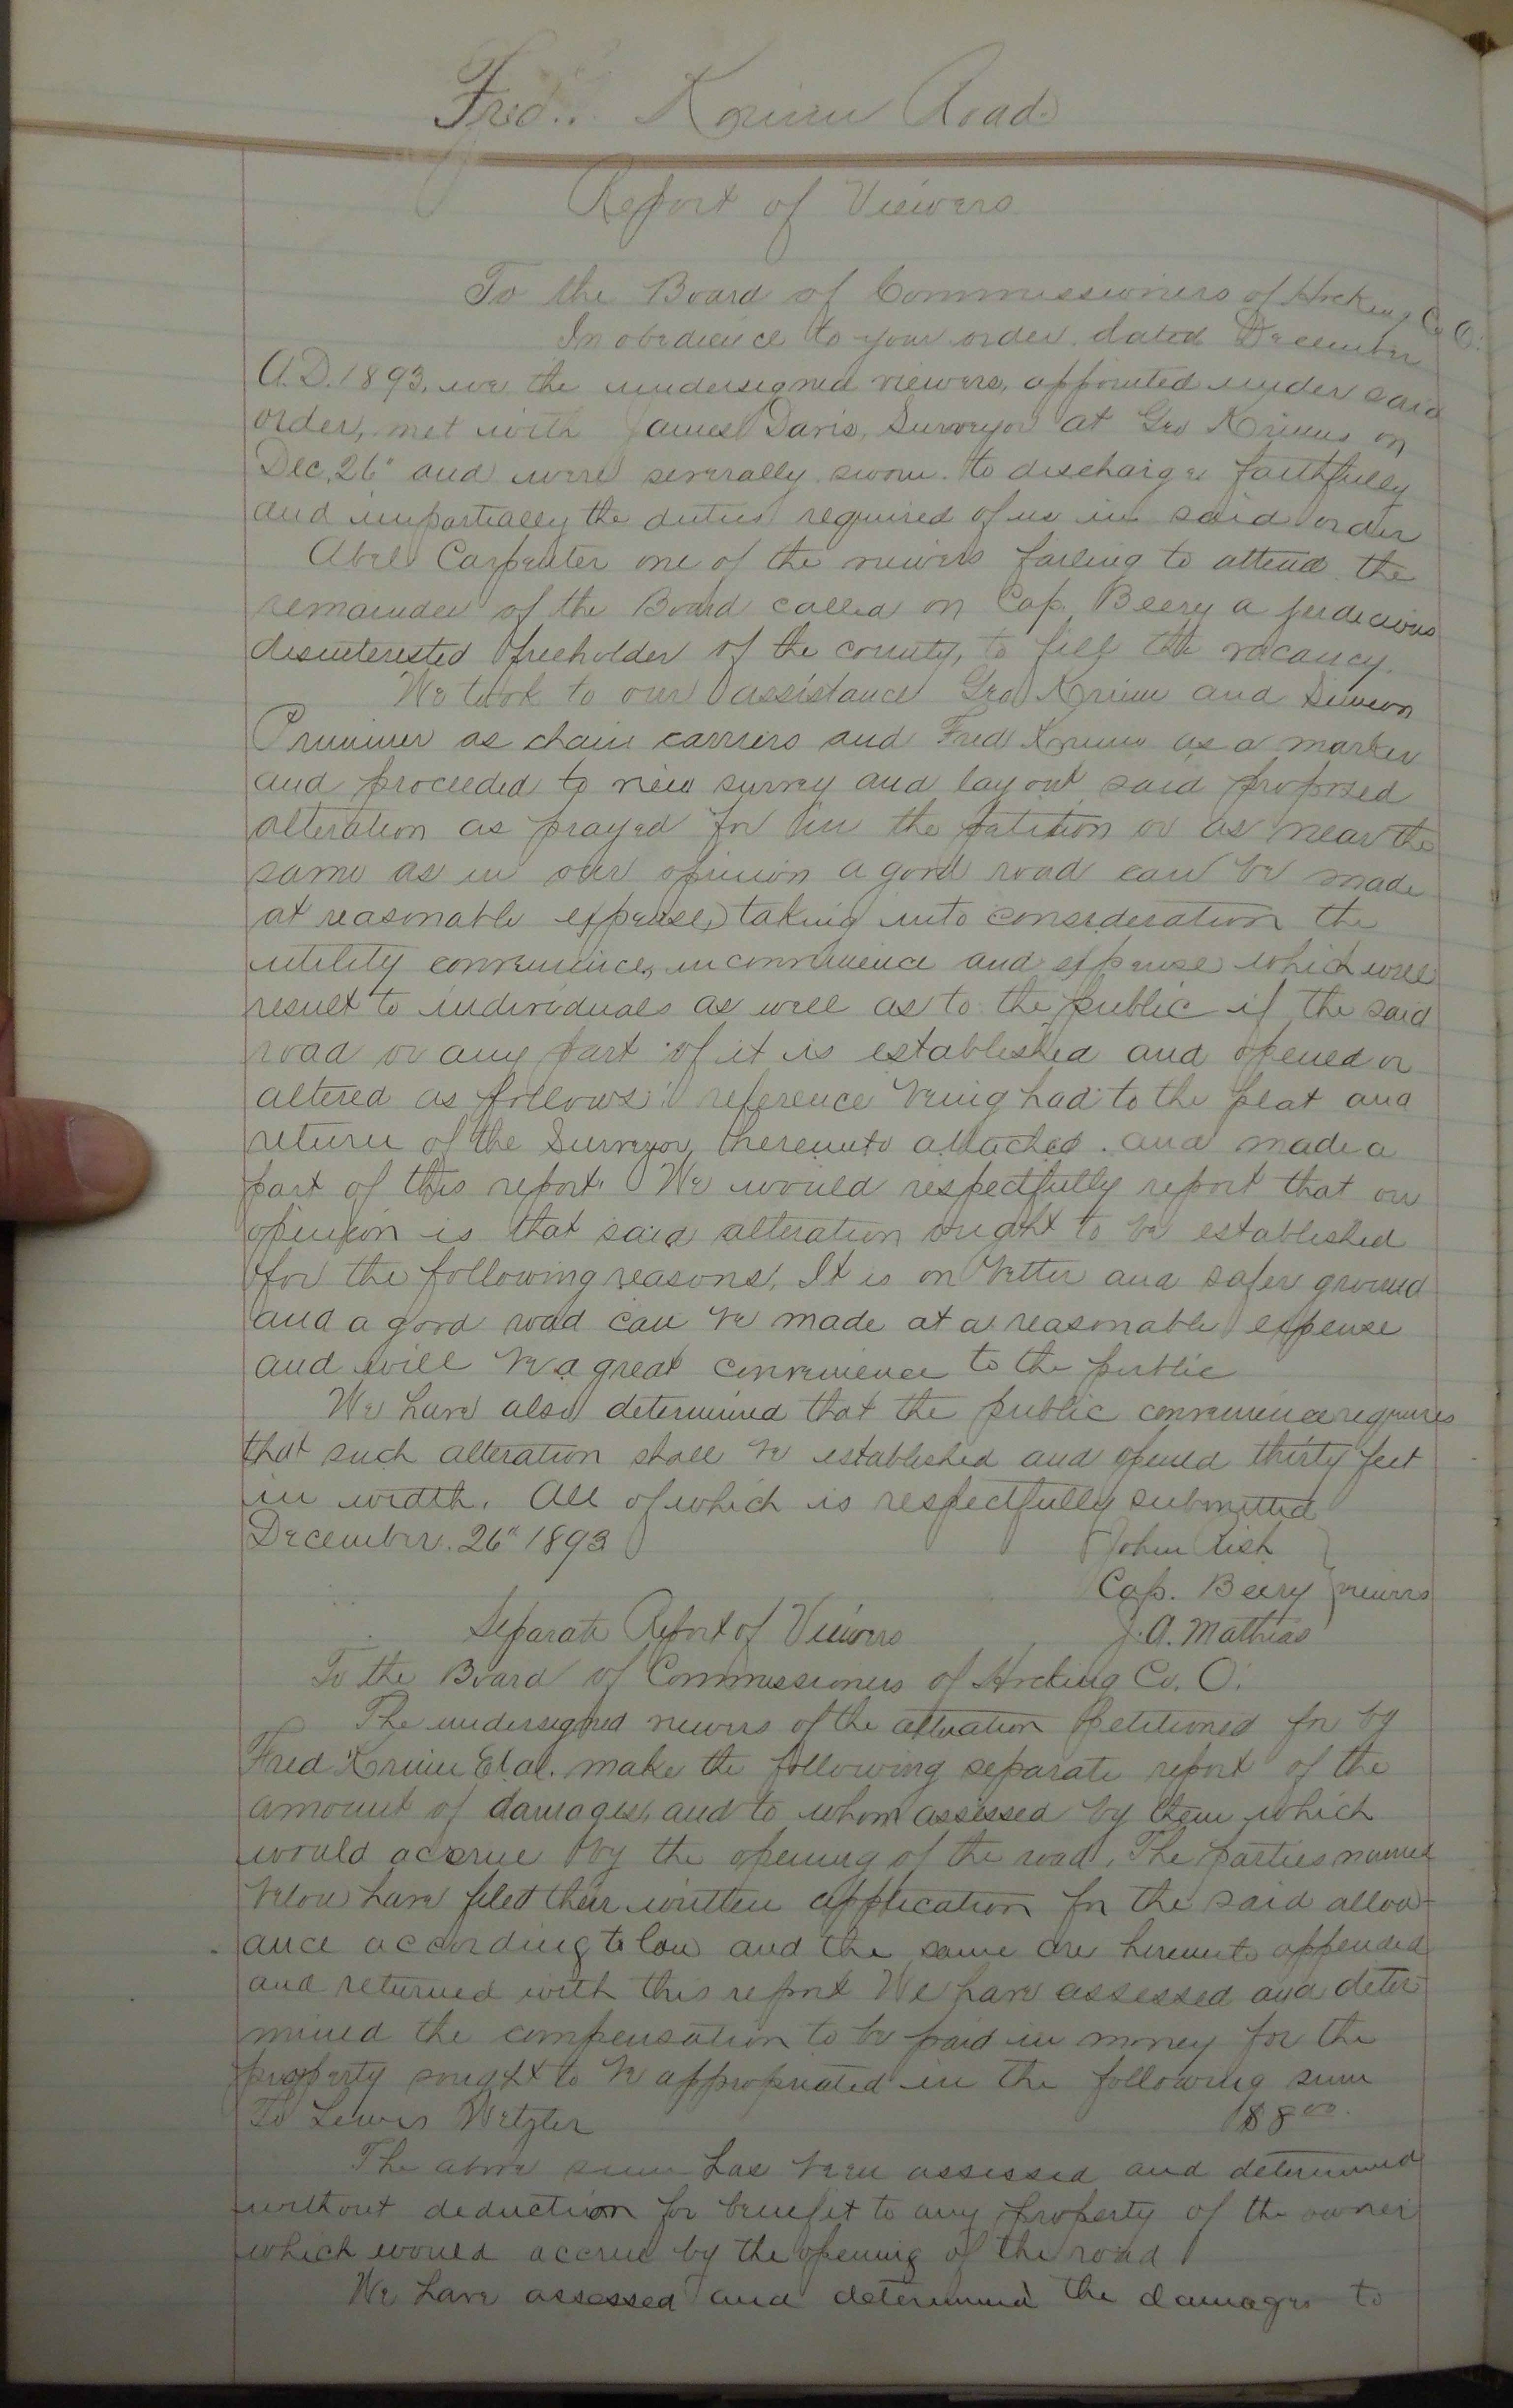 Fred. Krinn Road
Report of Viewers
To the Board of Commissioners of Hocking Co O.
In obedience to your order dated December
A.D. 1893, we the undersigned viewers, appointed under said
order, met with James Davis, Surveyor at Geo Krinns on
Dec. 26" and were severally sworn to discharge faithfully
and impartially the duties required of us in said order
Abel Carpenter one of the viewers failing to attend the
remainder of the Board called on Cap. Beery a judicious
disinterested freeholder of the county, to fill the vacancy.
We took to our assistance Geo Krinn and Simeon
Prummer as chain carriers and Fred Krinn as a marker
and proceeded to view survey and lay out said proposed
alteration as prayed for in the petition or as near the
same as in our opinion a good road can be made
at reasonable expense, taking into consideration the
utility convenience, inconvenience and expense which will
result to individuals as well as to the public if the said
road or any part of it is established and opened or
altered as follows: reference being had to the plat and
return of the Surveyor, hereunto attached and made a
part of this report. We would respectfully report that our
opinion is that said alteration ought to be established
for the following reasons. It is on better and safer ground
and a good road can be made at a reasonable expense
and will be a great convenience to the public
We have also determined that the public convenience requires
that such alteration shall be established and opened thirty feet
in width. All of which is respectfully submitted
December. 26" 1893
John Rish
Cap. Beery } viewers
J. A. Mathias
Separate Report of Viewers
To the Board of Commissioners of Hocking Co. O.
The undersigned viewers of the alteration petitioned for by
Fred Krinn Et al. make the following separate report of the
amount of damages, and to whom assessed by them which
would accrue by the opening of the road. The parties named
below have filed their written application for the said allow-
ance according to law and the same are hereunto appended
and returned with this report We have assessed and deter-
mined the compensation to be paid in money for the
property sought to be appropriated in the following sum
To Lewis Wetzler $8 00
The above sum has been assessed and determined
without deduction for benefit to any property of the owner
which would accrue by the opening of the road
We have assessed and determined the damages to